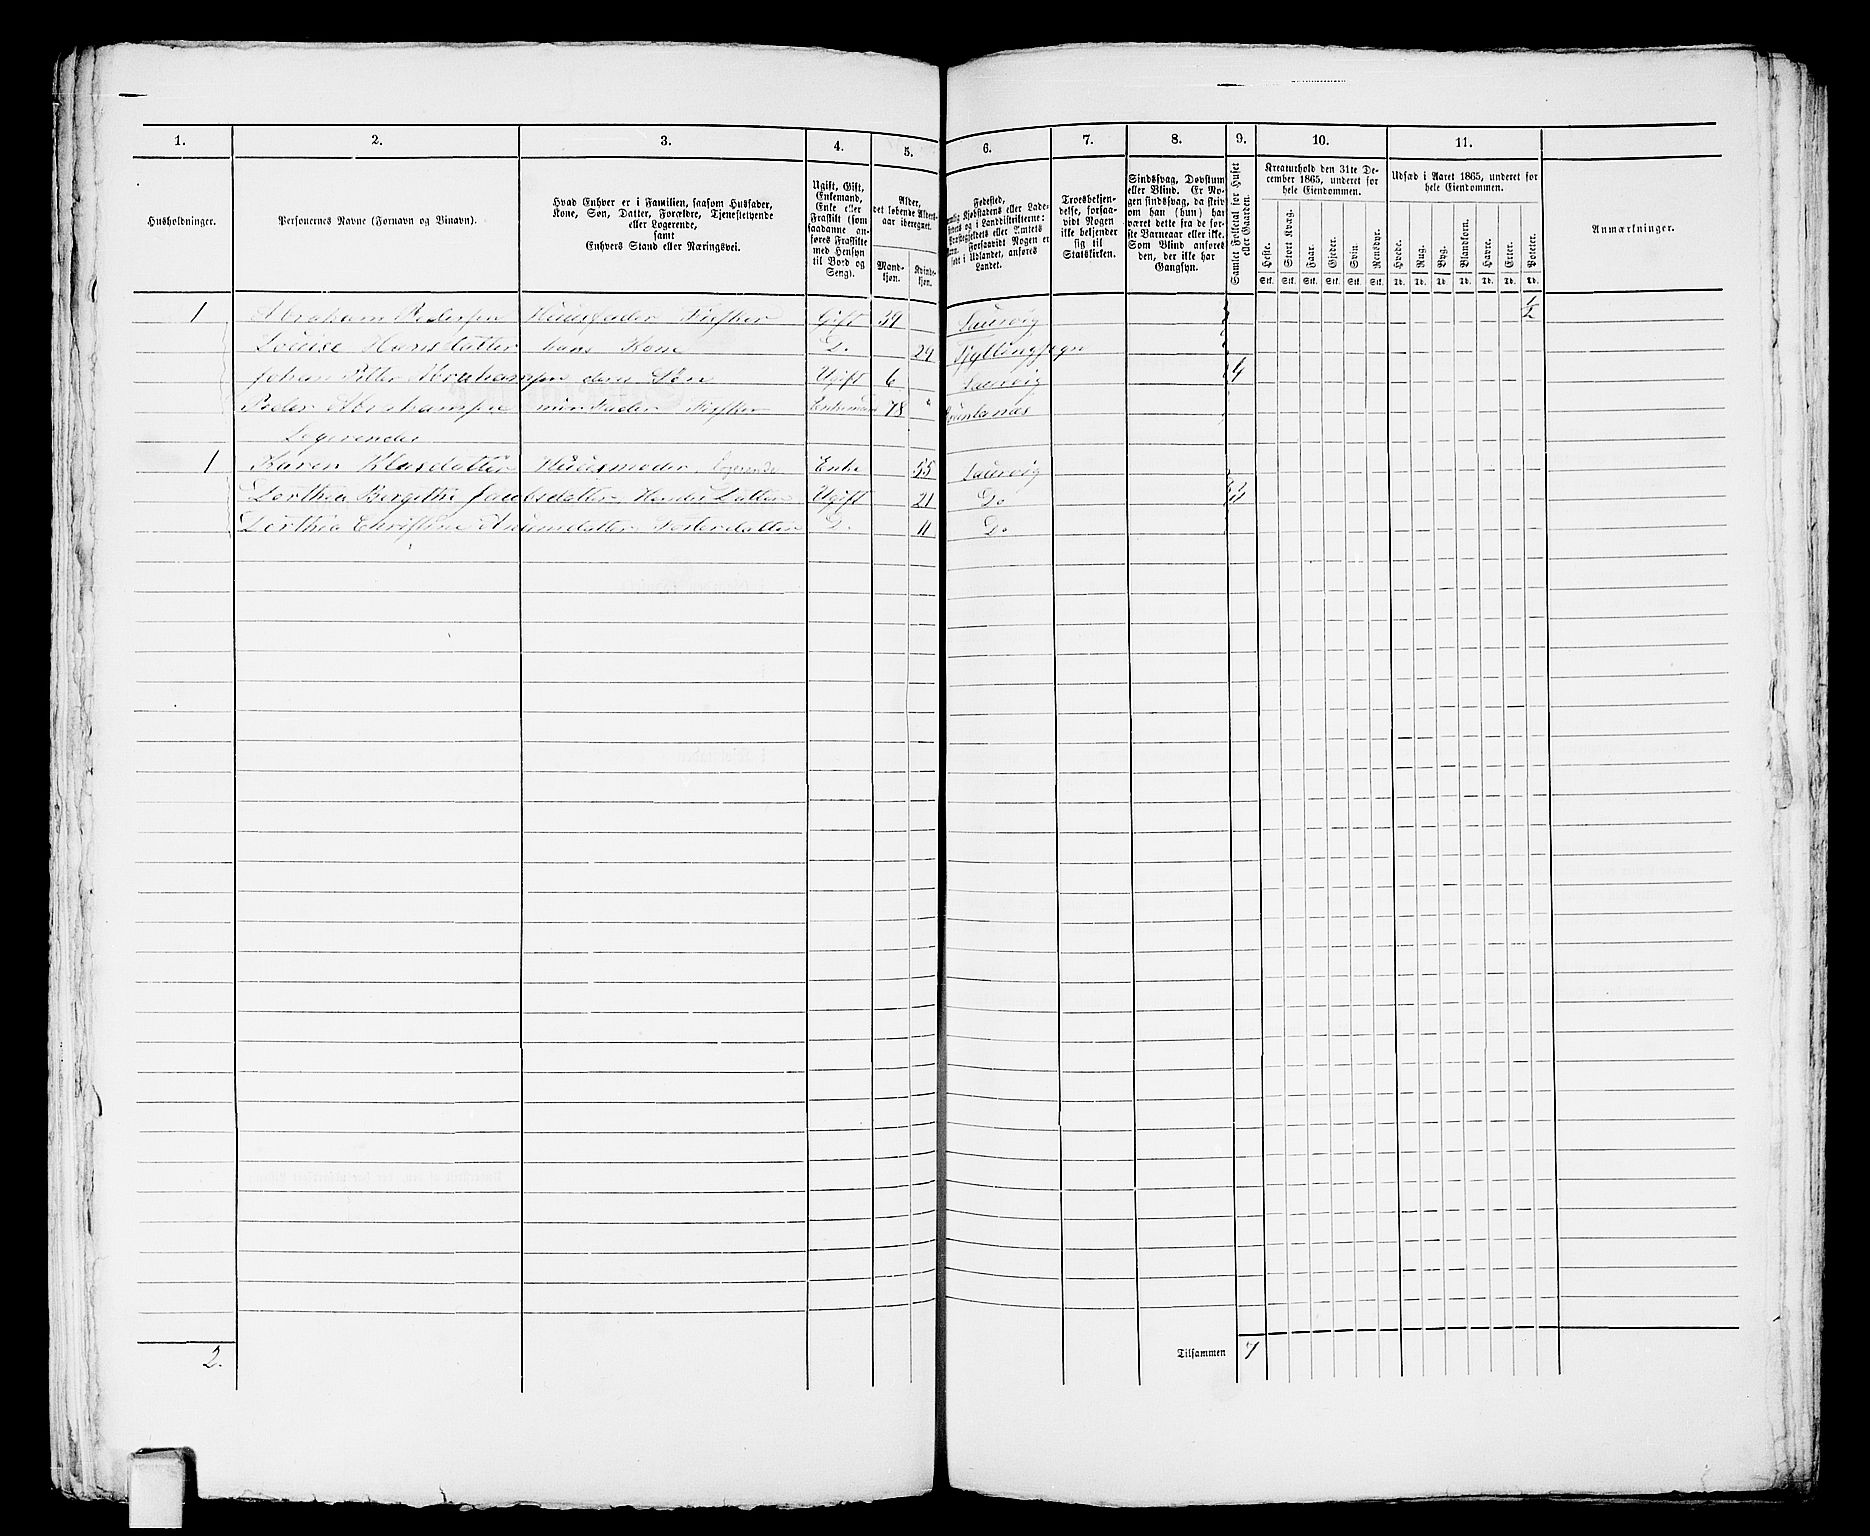 1. 2. 3. 4. 5. 6. 7. 8. 9. 10. 11.
Husholdninger.
Personernes Navne (Fornavn og Binavn).
Hvad Enhver er i Familien, saasom Husfader,
Kone, Søn, Datter, Forældre, Tjenestetyende
eller Logerende,
samt
Enhvers Stand eller Næringsvei.
Ugift, Gift,
Enkemand,
Enke eller
Fraskilt (som
saadanne an-
føres Fraskilte
med Hensyn
til Bord og
Seng).
Alder,
det løbende Alders-
aar iberegnet.
Mand-
kjøn.
Kvinde-
kjøn.
Fødested,
Kjøbstadens eller Lade-
i Landdistrikterne:
eller Amtets
Forsaavidt Nogen er
født i Udlandet, anføres
Landet.
Troesbekjen-
delse, forsaa-
vidt Nogen
ikke bekjender
sig til
Statskirken.
Sindssvag, Døvstum
eller Blind. Er No-
gen sindssvag, da skriv
om han (hun) har
været dette fra de før-
ste Barneaar eller ikke.
Som Blind anføres
den, der ikke har
Gangsyn.
Samlet Folketal for Huset
eller Gaarden.
Kreaturhold den 31te De-
cember 1865, underet for
hele Eiendommen.
Heste. Stort Kvæg. Faar. Gjeder. Svin. Rensdyr.
Stk. Stk. Stk. Stk. Stk. Stk.
Udsæd i Aaret 1865, underet for
hele Eiendommen.
Hvede. Rug. Byg. Blandkorn. Havre. Erter. Poteter.
Td. Td. Td. Td. Td. Td. Td.
Anmærkninger.
1 Abraham Pedersen Huusfader Fisker Gift 39 Laurvig 1/2
Louise Hansdatter hans Kone D. 29 Tjøllingsogn
Johan Abrahamsen deres Søn Ugift 6 Laurvig 4
Peder Abrahamsen min Fader Fisker Enkemand 78 "
Logerender
1 Karen Klasdatter Huusmoder Logerende Enke 55 Laurvig
Dorthea Bergithe Jacobsdatter Hendes Datter Ugift 21 Do
Dorthea Christine Fosterdatter D. 11 Do
2. Tilsammen 7